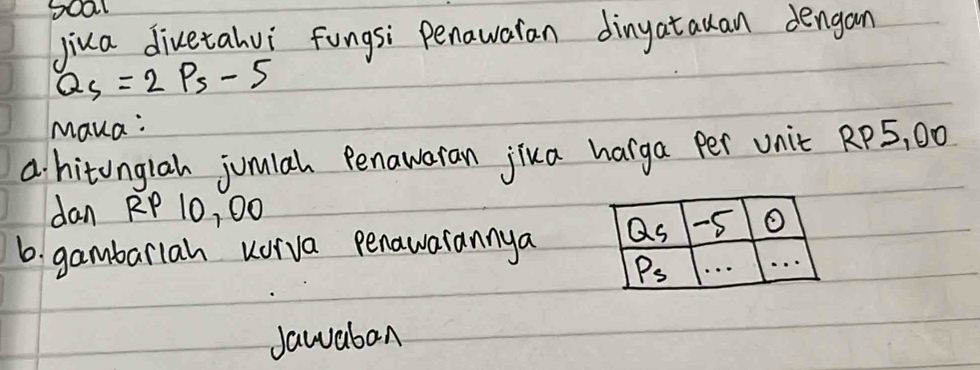 Soal
jika diketahui fungsi Penawaran dinyatakan dengan
Qs = 2 Ps - 5
Maka:
a. hitunglah jumlah Penawaran jika harga Per unit RP 5,00
dan RP 10,00
b. gambarlah kurva penawarannya
Qs -5 0
Ps ... ...
Jawaban